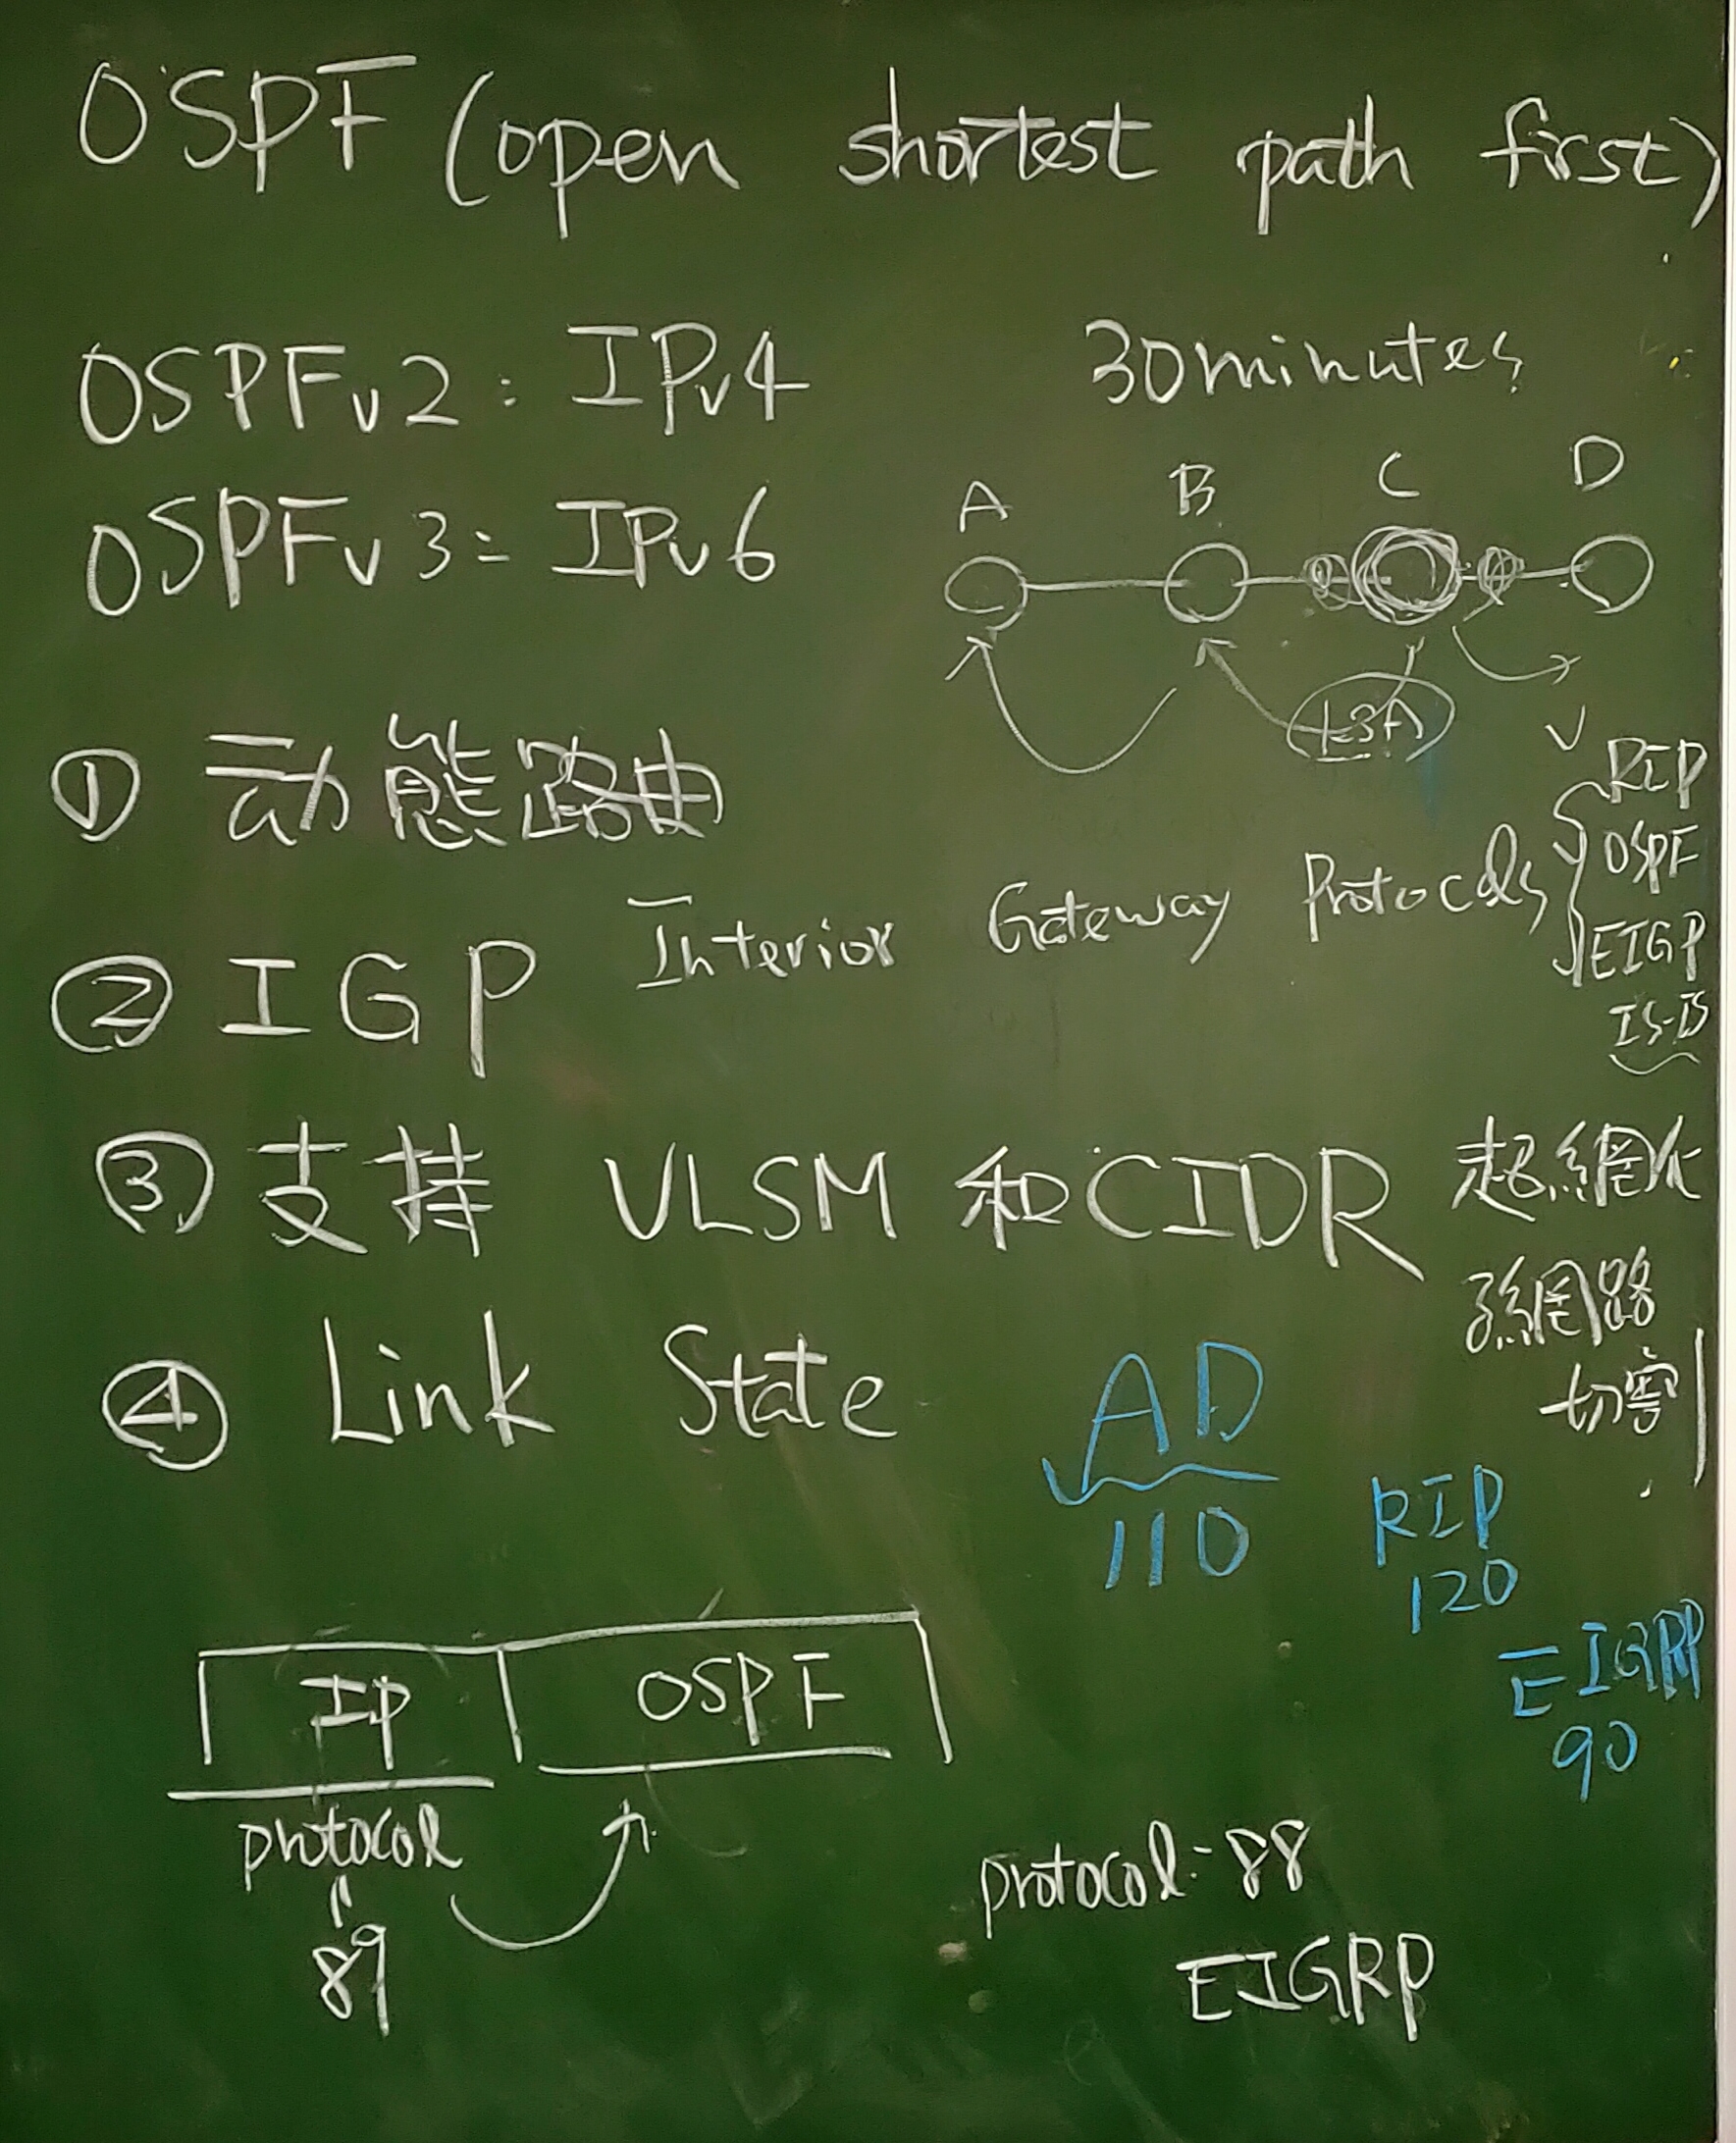 OSPF (open shortest path first)
OSPFv2: IPv4
OSPFv3: IPv6
30minutes
A B C D
LSA
① 动態路由
② IGP Interior Gateway Protocols
RIP
OSPF
EIGP
IS-IS
③ 支持 VLSM 和CIDR
超網化
子網路
切割
④ Link State
AD
110
RIP
120
EIGRP
90
IP OSPF
protocol
"
89
protocol: 88
EIGRP